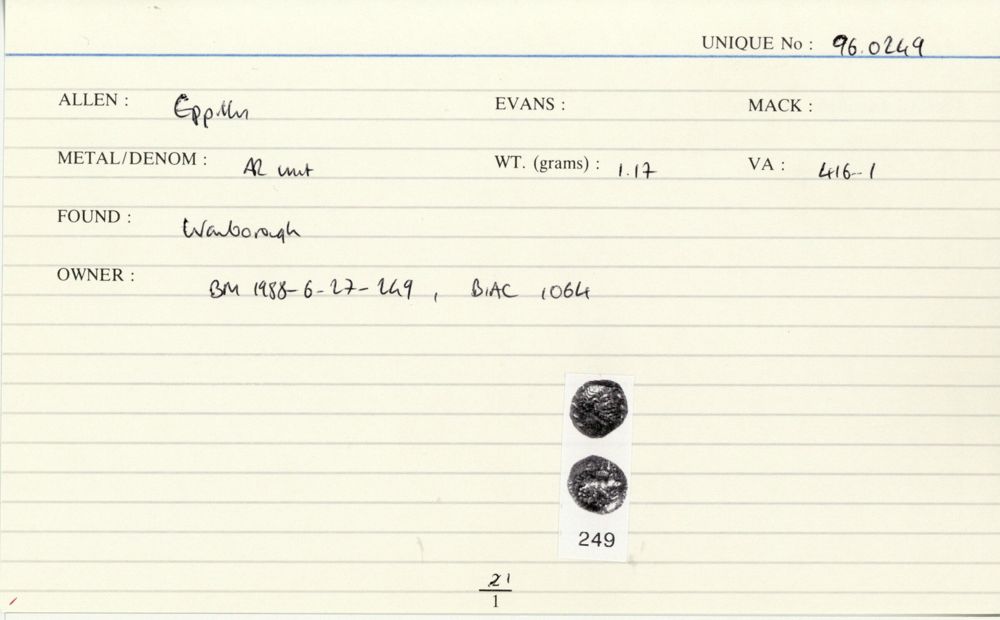 UNIQUE No : 96.0249
ALLEN : Eppillus EVANS : MACK :
METAL/DENOM : AR unit WT. (grams) : 1.17 VA : 416-1
FOUND : Wanborough
OWNER : BM 1988-6-27-249, BIAC 1064
249
21
1